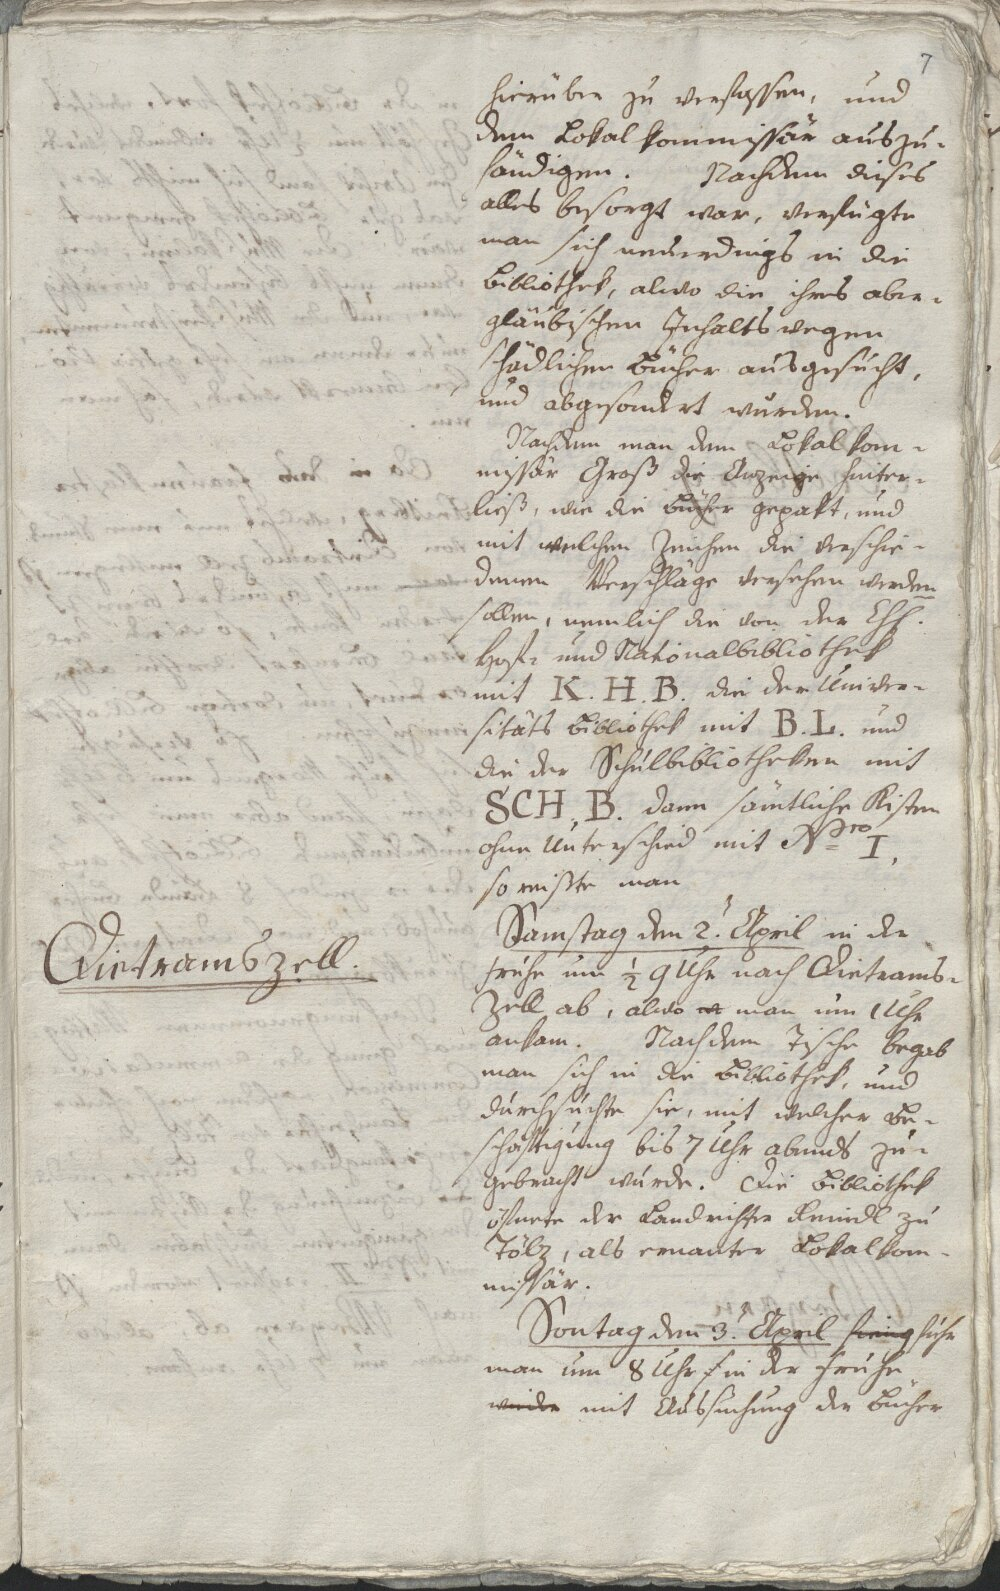 7
hierüber zu verfassen, und
dem Lokalkommissär auszu-
händigen. Nachdem dieses
alles besorgt war, verfügte
man sich neuerdings in die
Bibliothek, alwo die ihres aber-
gläubischen Inhalts wegen
schädlichen Bücher ausgesucht,
und abgesondert wurden.
Nachdem man dem Lokalkom-
missär Groß die Anzeige hinter-
ließ, wie die Bücher gepakt, und
mit welchen Zeichen die verschie-
denen Verschläge versehen werden
sollen, nemlich die von der Chf.
Hof- und Nationalbibliothek
mit K. H. B. die der Univer-
sitäts Bibliothek mit B. L. und
die der Schulbibliotheken mit
SCH. B. dann sämtliche Kisten
ohne Unterschied mit Nro I,
so reißte man
Samstag den 2. April in der
Dietramszell.
frühe um ½ 9 Uhr nach Dietrams-
zell ab, alwo man um 1 Uhr
ankam. Nach dem Tische begab
man sich in die Bibliothek, und
durchsuchte sie, mit welcher Be-
schäftigung bis 7 Uhr abends zu-
gebracht wurde. Die Bibliothek
öfnete der Landrichter zu
Tölz, als ernanter Lokalkom-
missär.
Sontag den 3. April fieng fuhr
man um 8 Uhr in der Frühe
wieder mit Aussuchung der Bücher